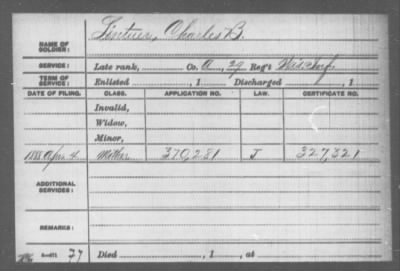 NAME OF SOLDIER: Lintner, Charles B.
SERVICE: Late rank, Co. A, 29 Reg't Wis. Inf.
TERM OF SERVICE: Enlisted , 1 Discharged , 1
DATE OF FILING. CLASS. APPLICATION NO. LAW. CERTIFICATE NO.
Invalid,
Widow,
Minor,
1888 Apr. 4. Mother 370,281 J 327,321
ADDITIONAL SERVICES:
REMARKS:
27 Died , 1 , at